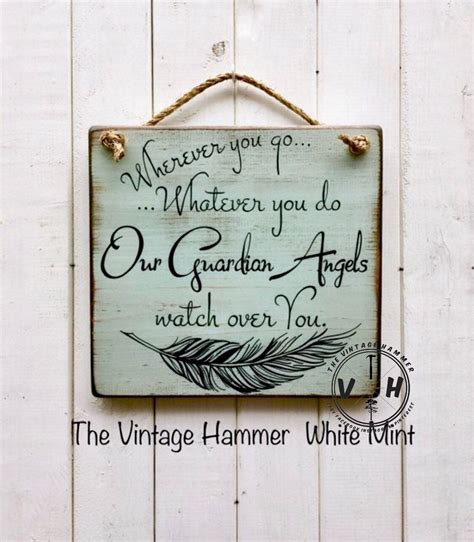 Wherever you go...
...Whatever you do
Our Guardian Angels
watch over You.
THE VINTAGE HAMMER
V T H
The Vintage Hammer White Mint